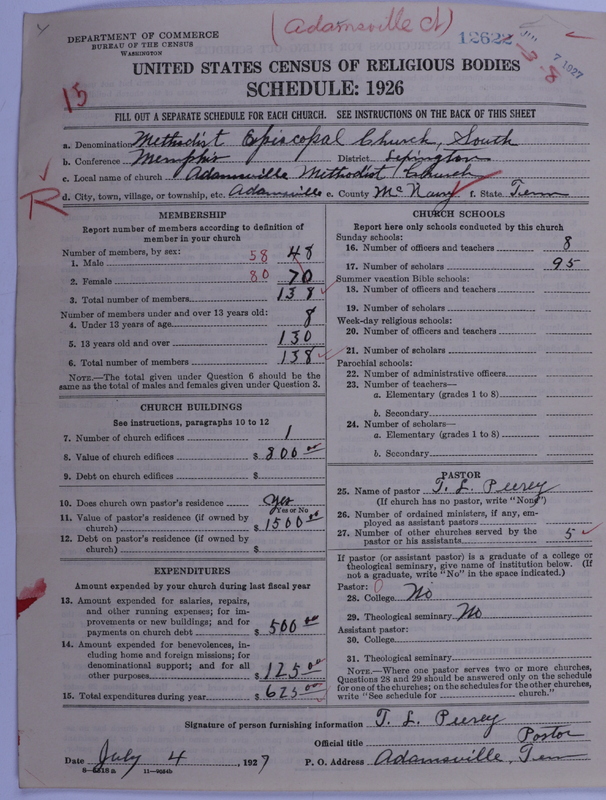 (Adamsville Ct)
DEPARTMENT OF COMMERCE
BUREAU OF THE CENSUS
WASHINGTON
12622
7 1927
UNITED STATES CENSUS OF RELIGIOUS BODIES
SCHEDULE: 1926
15
FILL OUT A SEPARATE SCHEDULE FOR EACH CHURCH. SEE INSTRUCTIONS ON THE BACK OF THIS SHEET
a. Denomination Methodist Episcopal Church, South
b. Conference Memphis District Lexington
c. Local name of church Adamsville Methodist Church
R
d. City, town, village, or township, etc. Adamsville e. County McNairy f. State Tenn
MEMBERSHIP
Report number of members according to definition of member in your church
Number of members, by sex:
1. Male 58 48
2. Female 80 70
3. Total number of members 138
Number of members under and over 13 years old:
4. Under 13 years of age 8
5. 13 years old and over 130
6. Total number of members 138
NOTE.—The total given under Question 6 should be the
same as the total of males and females given under Question 3.
CHURCH BUILDINGS
See instructions, paragraphs 10 to 12
7. Number of church edifices 1
8. Value of church edifices $ 800 00
9. Debt on church edifices $
10. Does church own pastor's residence Yes
Yes or No
11. Value of pastor's residence (if owned by
church) $ 1500 00
12. Debt on pastor's residence (if owned by
church) $
EXPENDITURES
Amount expended by your church during last fiscal year
13. Amount expended for salaries, repairs,
and other running expenses; for im-
provements or new buildings; and for
payments on church debt $ 500 00
14. Amount expended for benevolences, in-
cluding home and foreign missions; for
denominational support; and for all
other purposes $ 125 00
15. Total expenditures during year $ 625 00
CHURCH SCHOOLS
Report here only schools conducted by this church
Sunday schools:
16. Number of officers and teachers 8
17. Number of scholars 95
Summer vacation Bible schools:
18. Number of officers and teachers
19. Number of scholars
Week-day religious schools:
20. Number of officers and teachers
21. Number of scholars
Parochial schools:
22. Number of administrative officers
23. Number of teachers—
a. Elementary (grades 1 to 8)
b. Secondary
24. Number of scholars—
a. Elementary (grades 1 to 8)
b. Secondary
PASTOR
25. Name of pastor T. L. Peerey
(If church has no pastor, write "None")
26. Number of ordained ministers, if any, em-
ployed as assistant pastors
27. Number of other churches served by the
pastor or his assistants 5
If pastor (or assistant pastor) is a graduate of a college or
theological seminary, give name of institution below. (If
not a graduate, write "No" in the space indicated.)
Pastor: 0
28. College No
29. Theological seminary No
Assistant pastor:
30. College
31. Theological seminary
NOTE.—Where one pastor serves two or more churches,
Questions 28 and 29 should be answered only on the schedule
for one of the churches; on the schedules for the other churches,
write "See schedule for church."
Signature of person furnishing information T. L. Peerey
Official title Pastor
Date July 4, 1927 P. O. Address Adamsville, Tenn